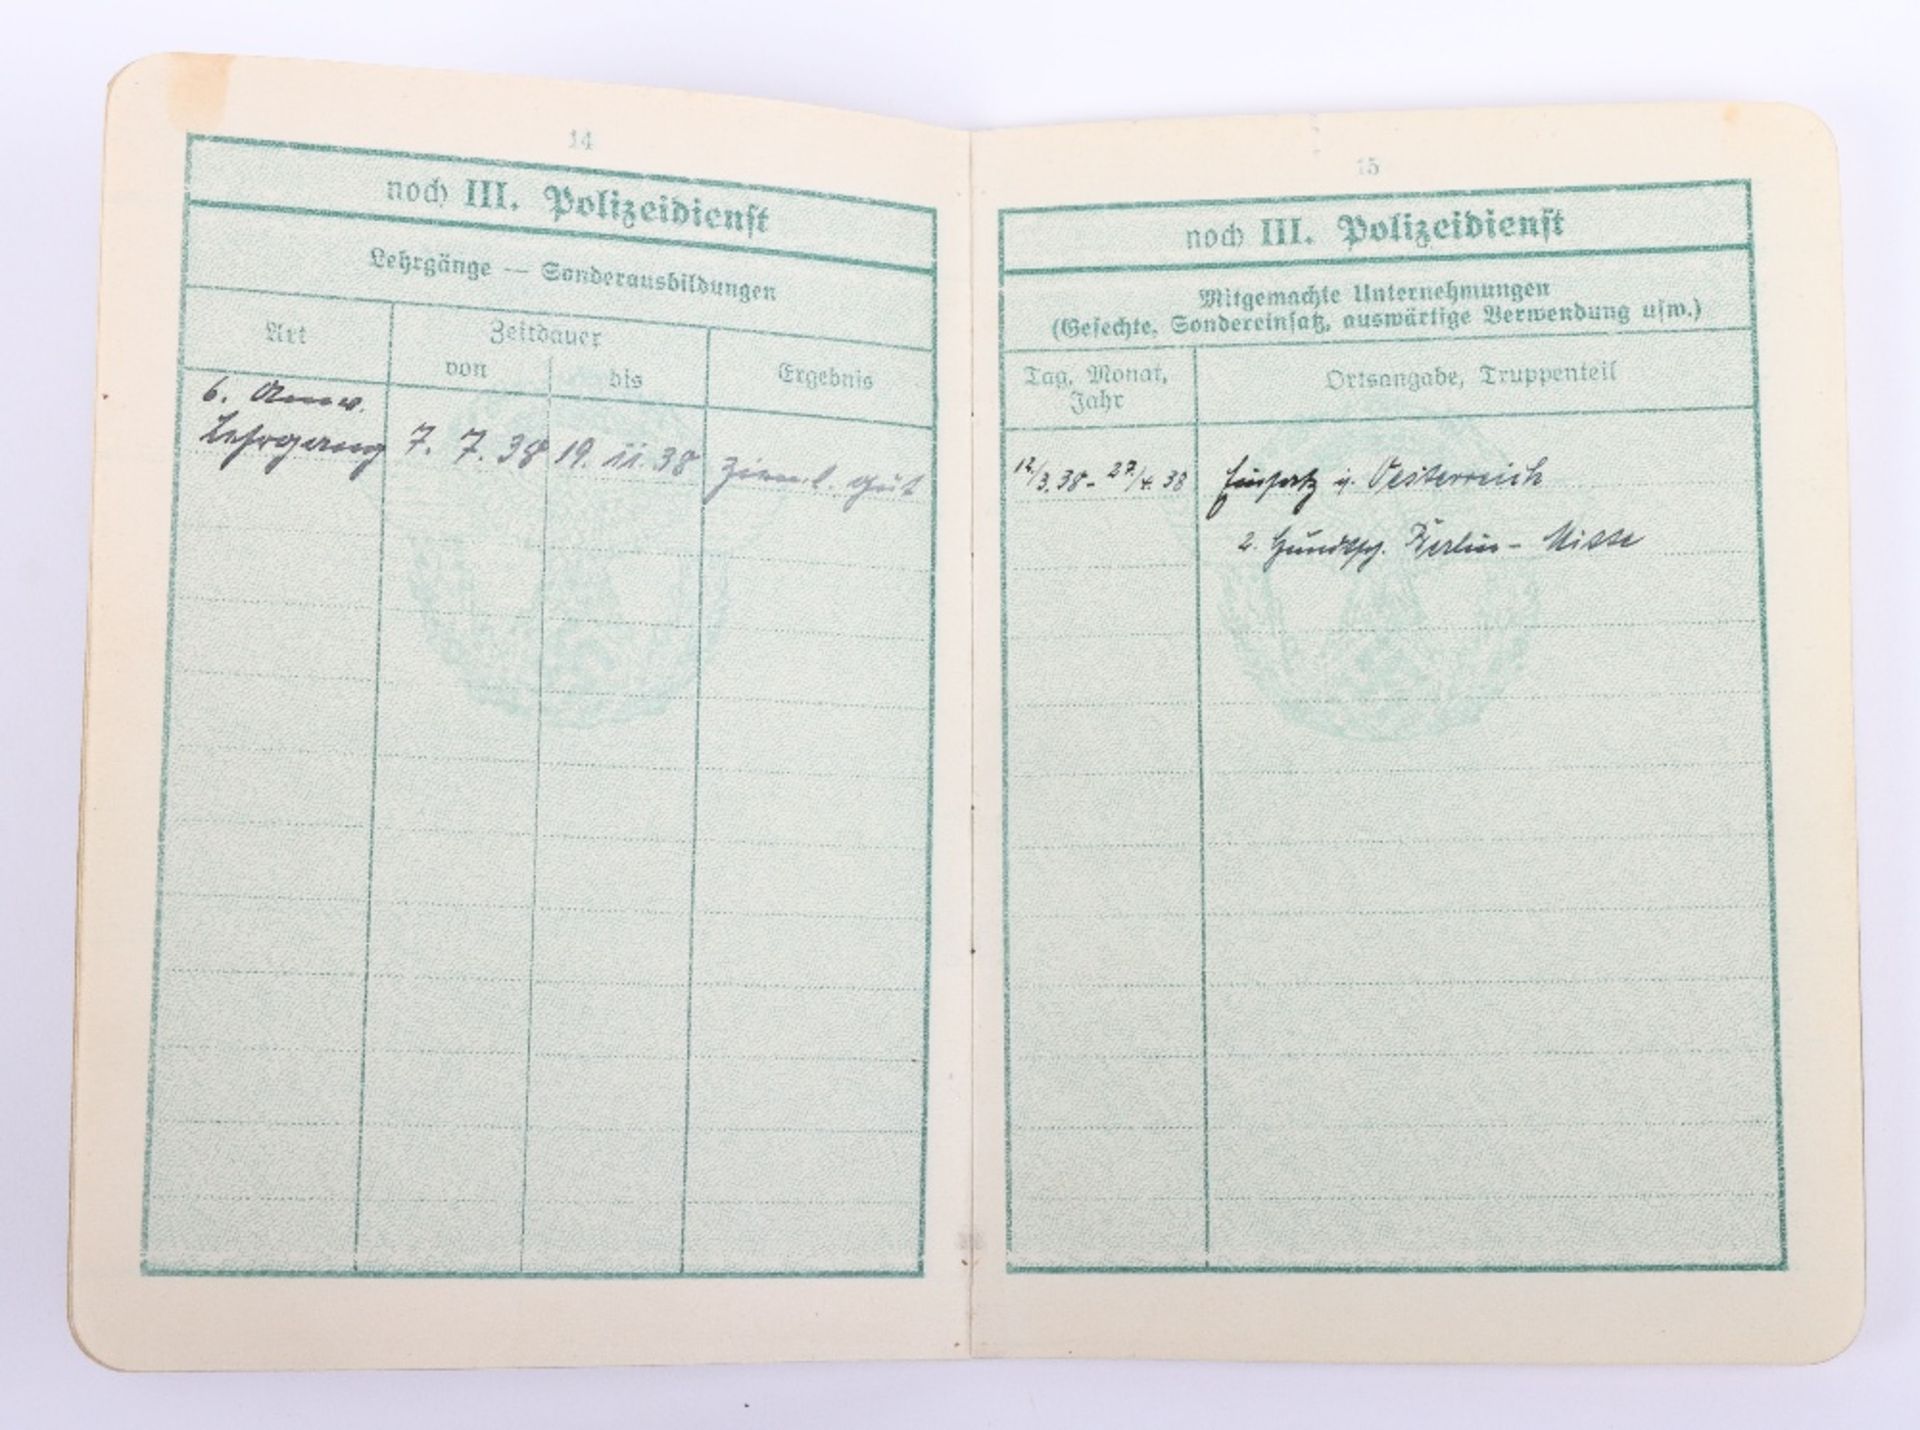 14
noch III. Polizeidienst
Lehrgänge — Sonderausbildungen
Art
Zeitdauer
von
bis
Ergebnis
6. Anw.
Lehrgang 7. 7. 38 19. 11. 38 Zieml. gut
15
noch III. Polizeidienst
Mitgemachte Unternehmungen
(Gefechte, Sondereinsatz, auswärtige Verwendung usw.)
Tag, Monat,
Jahr
Ortsangabe, Truppenteil
12./3. 38 - 27./4. 38 Einsatz i. Oesterreich
2. Berlin - Mitte